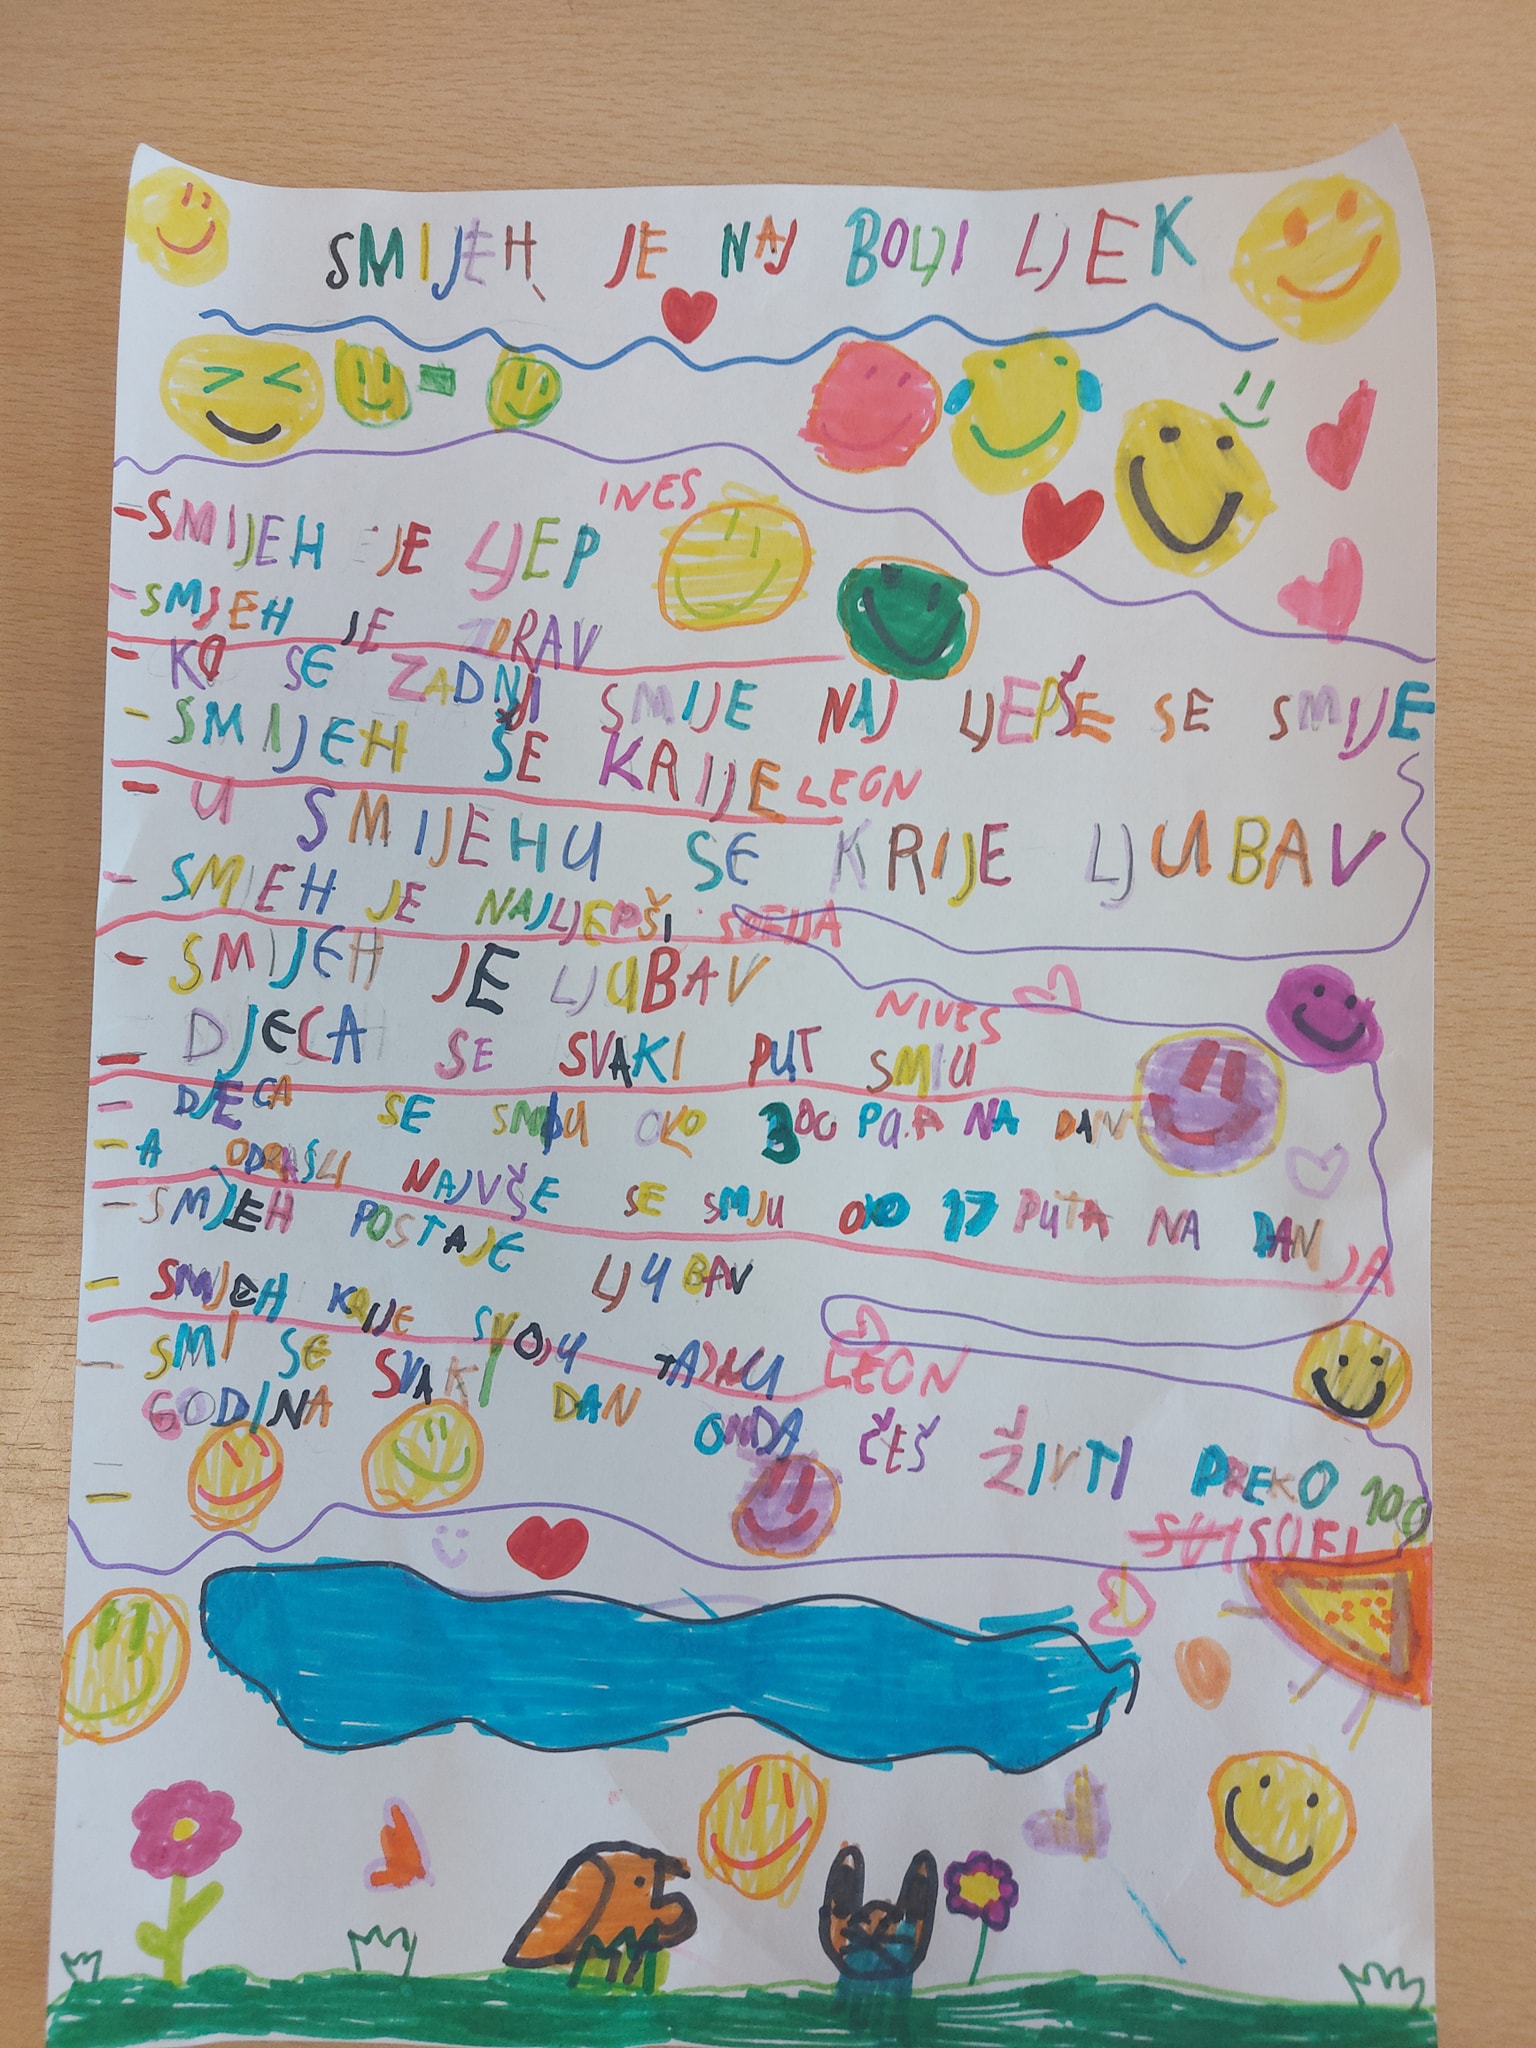 SMIJEH JE NAJ BOLJI LJEK
INES
-SMIJEH JE LJEP
-SMJEH JE ZDRAV
- KO SE ZADNJI SMIJE NAJ LJEPŠE SE SMIJE
- SMIJEH SE KRIJE LEON
- U SMIJEHU SE KRIJE LJUBAV
- SMIEH JE NAJLJEPŠI
- SMIJEH JE LJUBAV
NIVES
DJECA SE SVAKI PUT SMIU
- DJECA SE SMIJU OKO 300 PUTA NA DAN
- A ODRASLI NAJVŠE SE SMJU OKO 17 PUTA NA DAN
JA
-SMJEH POSTAJE LJUBAV
- SMJEH KRIJE SVOJU TAJNU LEON
- SMI SE SVAKI DAN ONDA ČEŠ ŽIVTI PREKO 100
GODINA